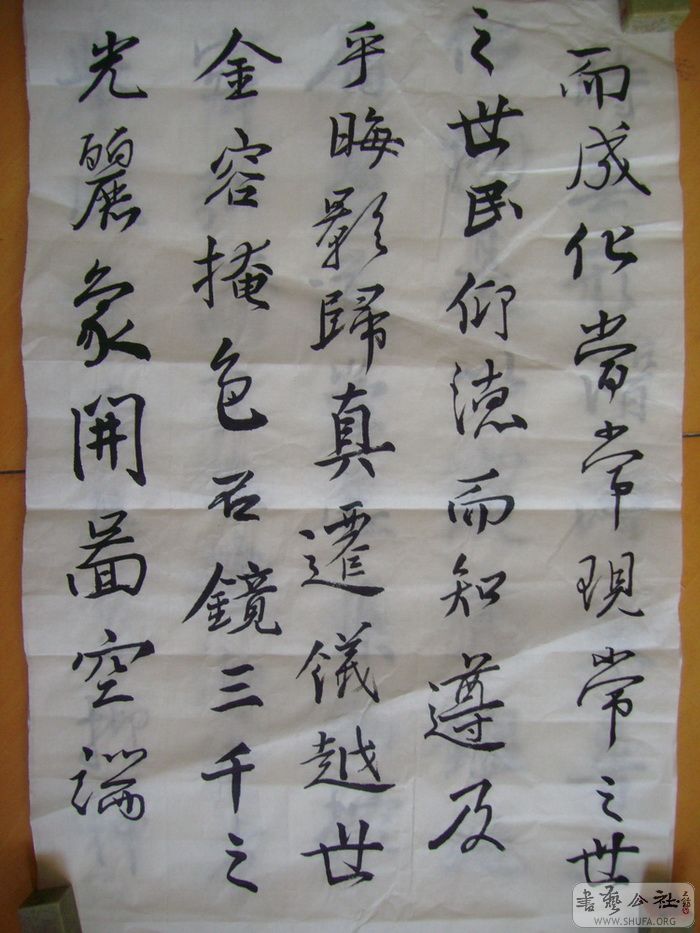 而成化當常現常之世
之世民仰德而知遵及
乎晦影歸真遷儀越世
金容掩色不鏡三千之
光麗象開圖空端
書藝公社
WWW.SHUFA.ORG